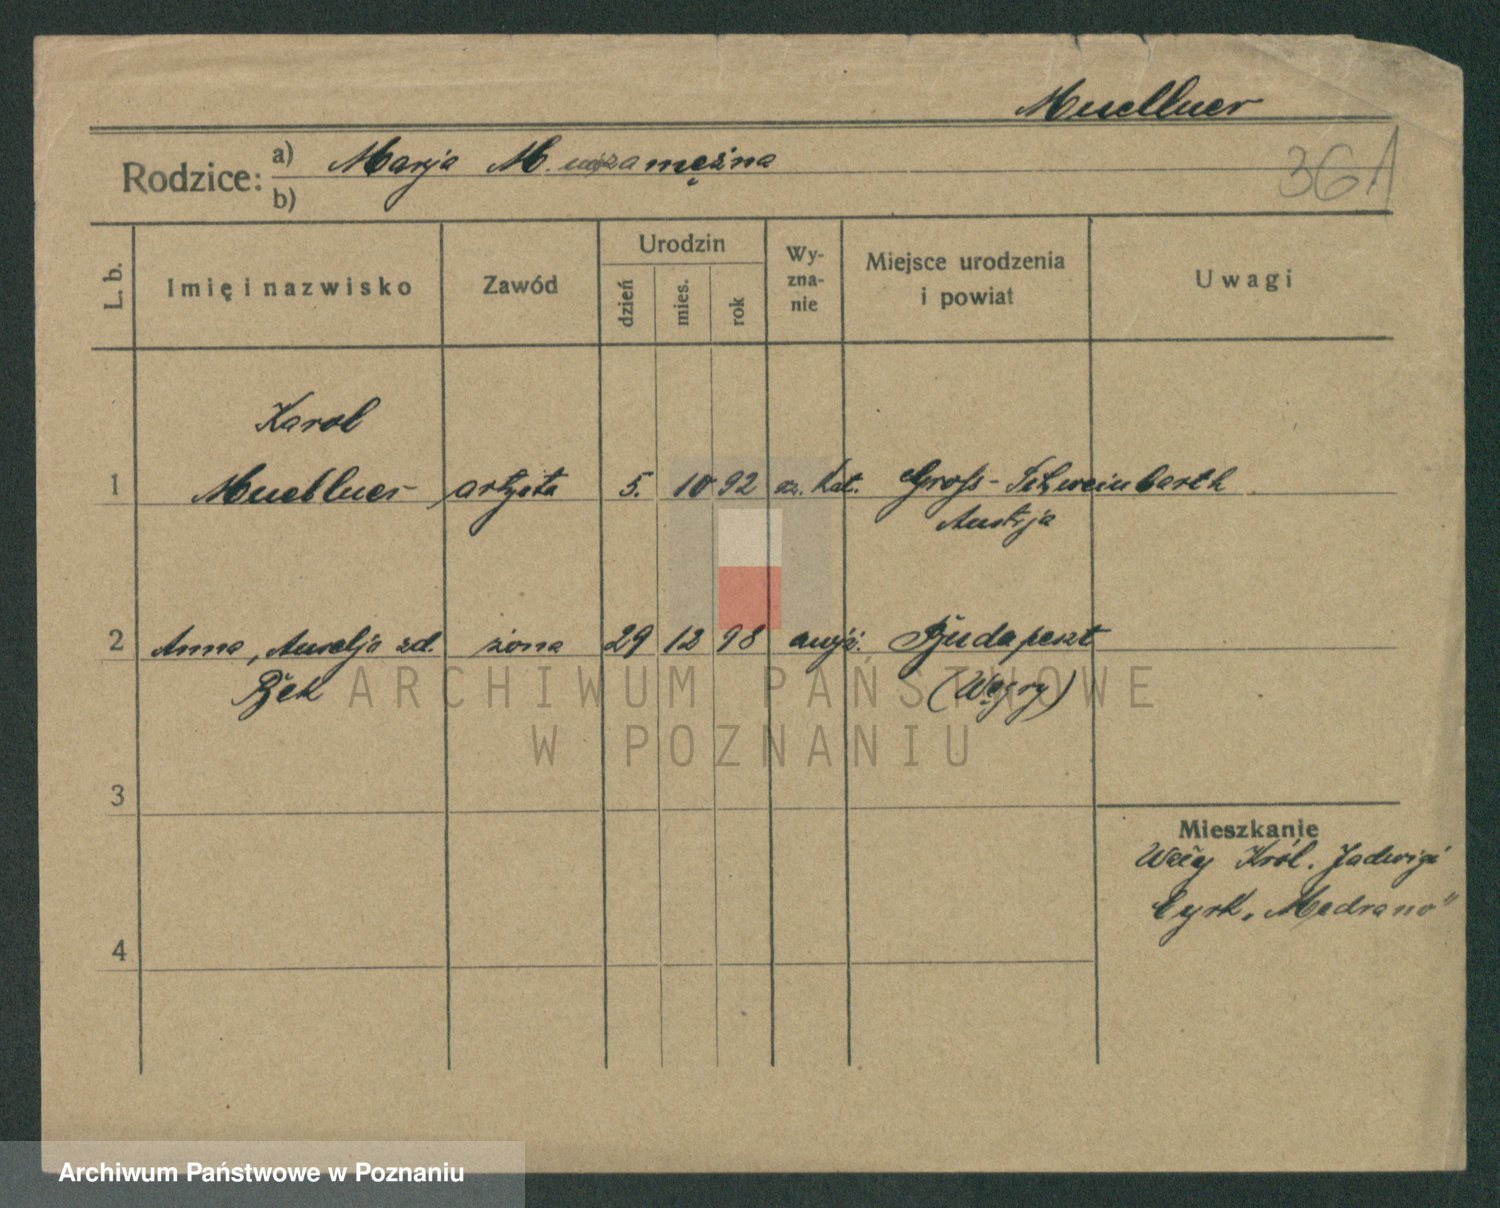 Muellner
Rodzice: a) Marja M. niezamężna
b)
36A
L. b. Imię i nazwisko Zawód Urodzin dzień mies. rok Wyznanie Miejsce urodzenia i powiat Uwagi
Karol
1 Muellner artysta 5. 10 92 rz. kat. Gross-Schweinbarth
Austrja
2 Anna, Aurelja zd. żona 29 12 98 Budapeszt
Bek (Węgry)
ARCHIWUM PAŃSTWOWE
W POZNANIU
3
Mieszkanie
Wały Król. Jadwigi
Cyrk „Medrano"
4
Archiwum Państwowe w Poznaniu